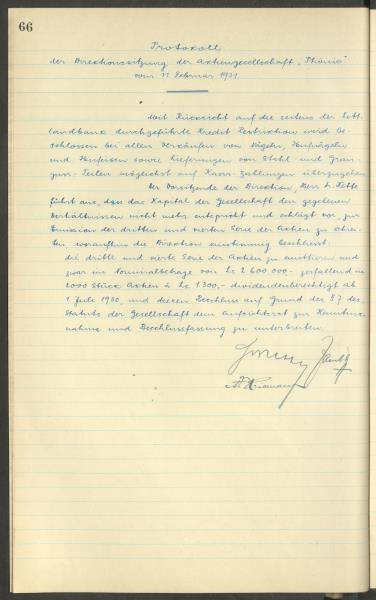 66
Protokoll
der Direktionssitzung der Aktiengesellschaft „Phönix"
vom 11 Februar 1931.
Mit Rücksicht auf die seitens der Lett.
Landbank durchgeführte Kredit Restriktion wird be-
schlossen bei allen Verkäufen von Nägeln, Hufnägeln
und Hufeisen sowie Lieferungen von Stahl- und Grau-
guss-Teilen möglichst auf Kassa-Zahlungen überzugehen.
Der Vorsitzende der Direktion, Herr L.
führt aus, dass das Kapital der Gesellschaft den gegebenen
Verhältnissen nicht mehr entspricht und schlägt vor, zur
Emission der dritten und vierten Serie der Aktien zu schrei-
ten, woraufhin die Direktion einstimmig beschliesst:
die dritte und vierte Serie der Aktien zu emittieren und
zwar im Nominalbetrage von Ls 2.600.000.- zerfallend in
2000 Stück Aktien à Ls 1.300,- dividendenberechtigt ab
1 Juli 1930, und diesen Beschluss auf Grund des § 7 des
Statuts der Gesellschaft dem Aufsichtsrat zur Kenntnis-
nahme und Beschlussfassung zu unterbreiten.